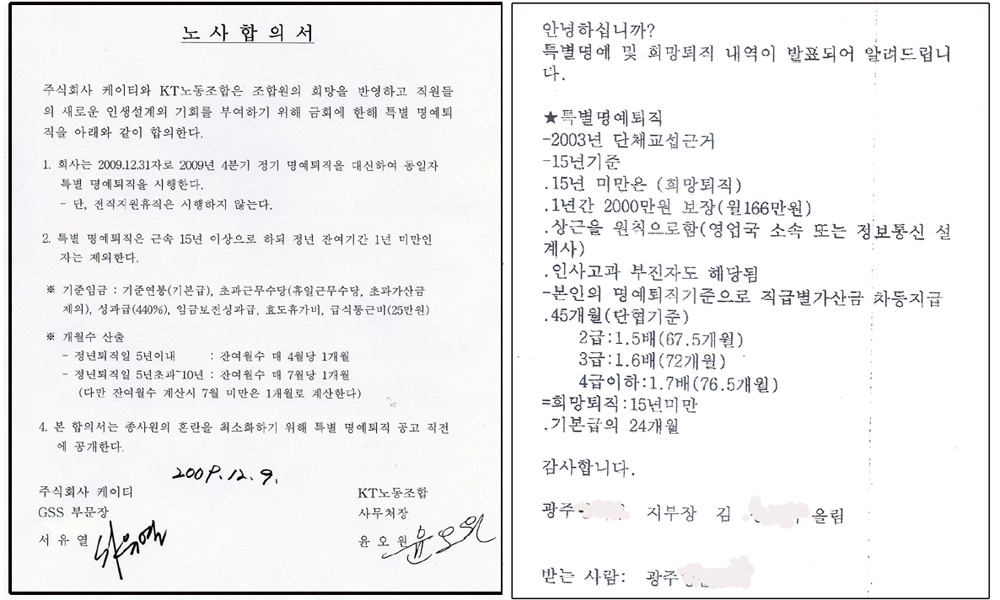 노 사 합 의 서
주식회사 케이티와 KT노동조합은 조합원의 희망을 반영하고 직원들
의 새로운 인생설계의 기회를 부여하기 위해 금회에 한해 특별 명예퇴
직을 아래와 같이 합의한다.
1. 회사는 2009.12.31자로 2009년 4분기 정기 명예퇴직을 대신하여 동일자
특별 명예퇴직을 시행한다.
- 단, 전직지원휴직은 시행하지 않는다.
2. 특별 명예퇴직은 근속 15년 이상으로 하되 정년 잔여기간 1년 미만인
자는 제외한다.
※ 기준임금 : 기준연봉(기본급), 초과근무수당(휴일근무수당, 초과가산금
제외), 성과급(440%), 임금보전성과급, 효도휴가비, 급식통근비(25만원)
※ 개월수 산출
- 정년퇴직일 5년이내 : 잔여월수 매 4월당 1개월
- 정년퇴직일 5년초과~10년 : 잔여월수 매 7월당 1개월
(다만 잔여월수 계산시 7월 미만은 1개월로 계산한다)
4. 본 합의서는 종사원의 혼란을 최소화하기 위해 특별 명예퇴직 공고 직전
에 공개한다.
2009.12.9.
주식회사 케이티
GSS 부문장
서 유 열 서유열
KT노동조합
사무처장
윤 오 원 윤오원
안녕하십니까?
특별명예 및 희망퇴직 내역이 발표되어 알려드립니
다.
★특별명예퇴직
-2003년 단채교섭근거
-15년기준
.15년 미만은 (희망퇴직)
.1년간 2000만원 보장(월166만원)
.상근을 원칙으로함(영업국 소속 또는 정보통신 설
계사)
.인사고과 부진자도 해당됨
-본인의 명예퇴직기준으로 직급별가산금 차등지급
.45개월(단협기준)
2급:1.5배(67.5개월)
3급:1.6배(72개월)
4급이하:1.7배(76.5개월)
=희망퇴직:15년미만
.기본급의 24개월
감사합니다.
광주 지부장 김 올림
받는 사람: 광주